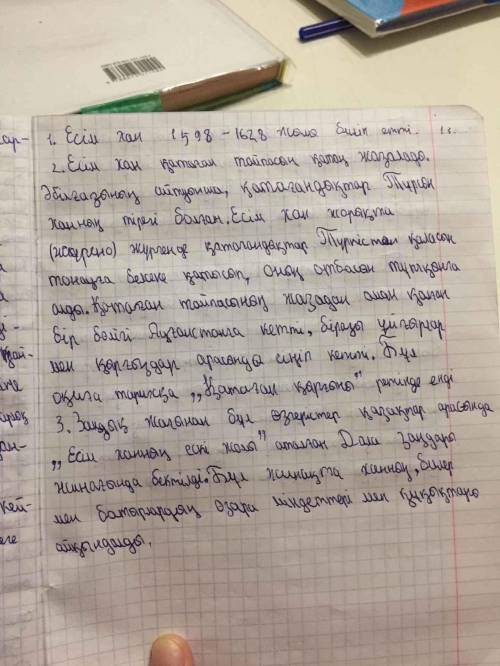 1. Есім хан 1598-1628 жыл билік етті.
2. Есім хан қатаған тайпасын қатаң жазалады.
Әбілғазының айтуынша, қатағандықтар Тұрсын
ханның тірегі болған. Есім хан жорықта
жүргенде қатағандықтар Түркістан қаласын
тонауға белсене қатысып, оның отбасын тұтқынға
алды. Қатаған тайпасының жазадан аман қалған
бір бөлігі Ауғанстанға кетті, біразы ұйғырлар
мен қырғыздар арасында сіңіп кетті. Бұл
оқиға тарихқа "Қатаған қырғыны" ретінде енді
3. Заңдық жағынан бұл өзгерістер қазақтар арасында
"Есім ханның ескі жолы" аталған Дала заңдары
жинағында бекітілді. Бұл жинақта ханның, билер
мен батырлардың өзара міндеттері мен құқықтары
айқындалды.